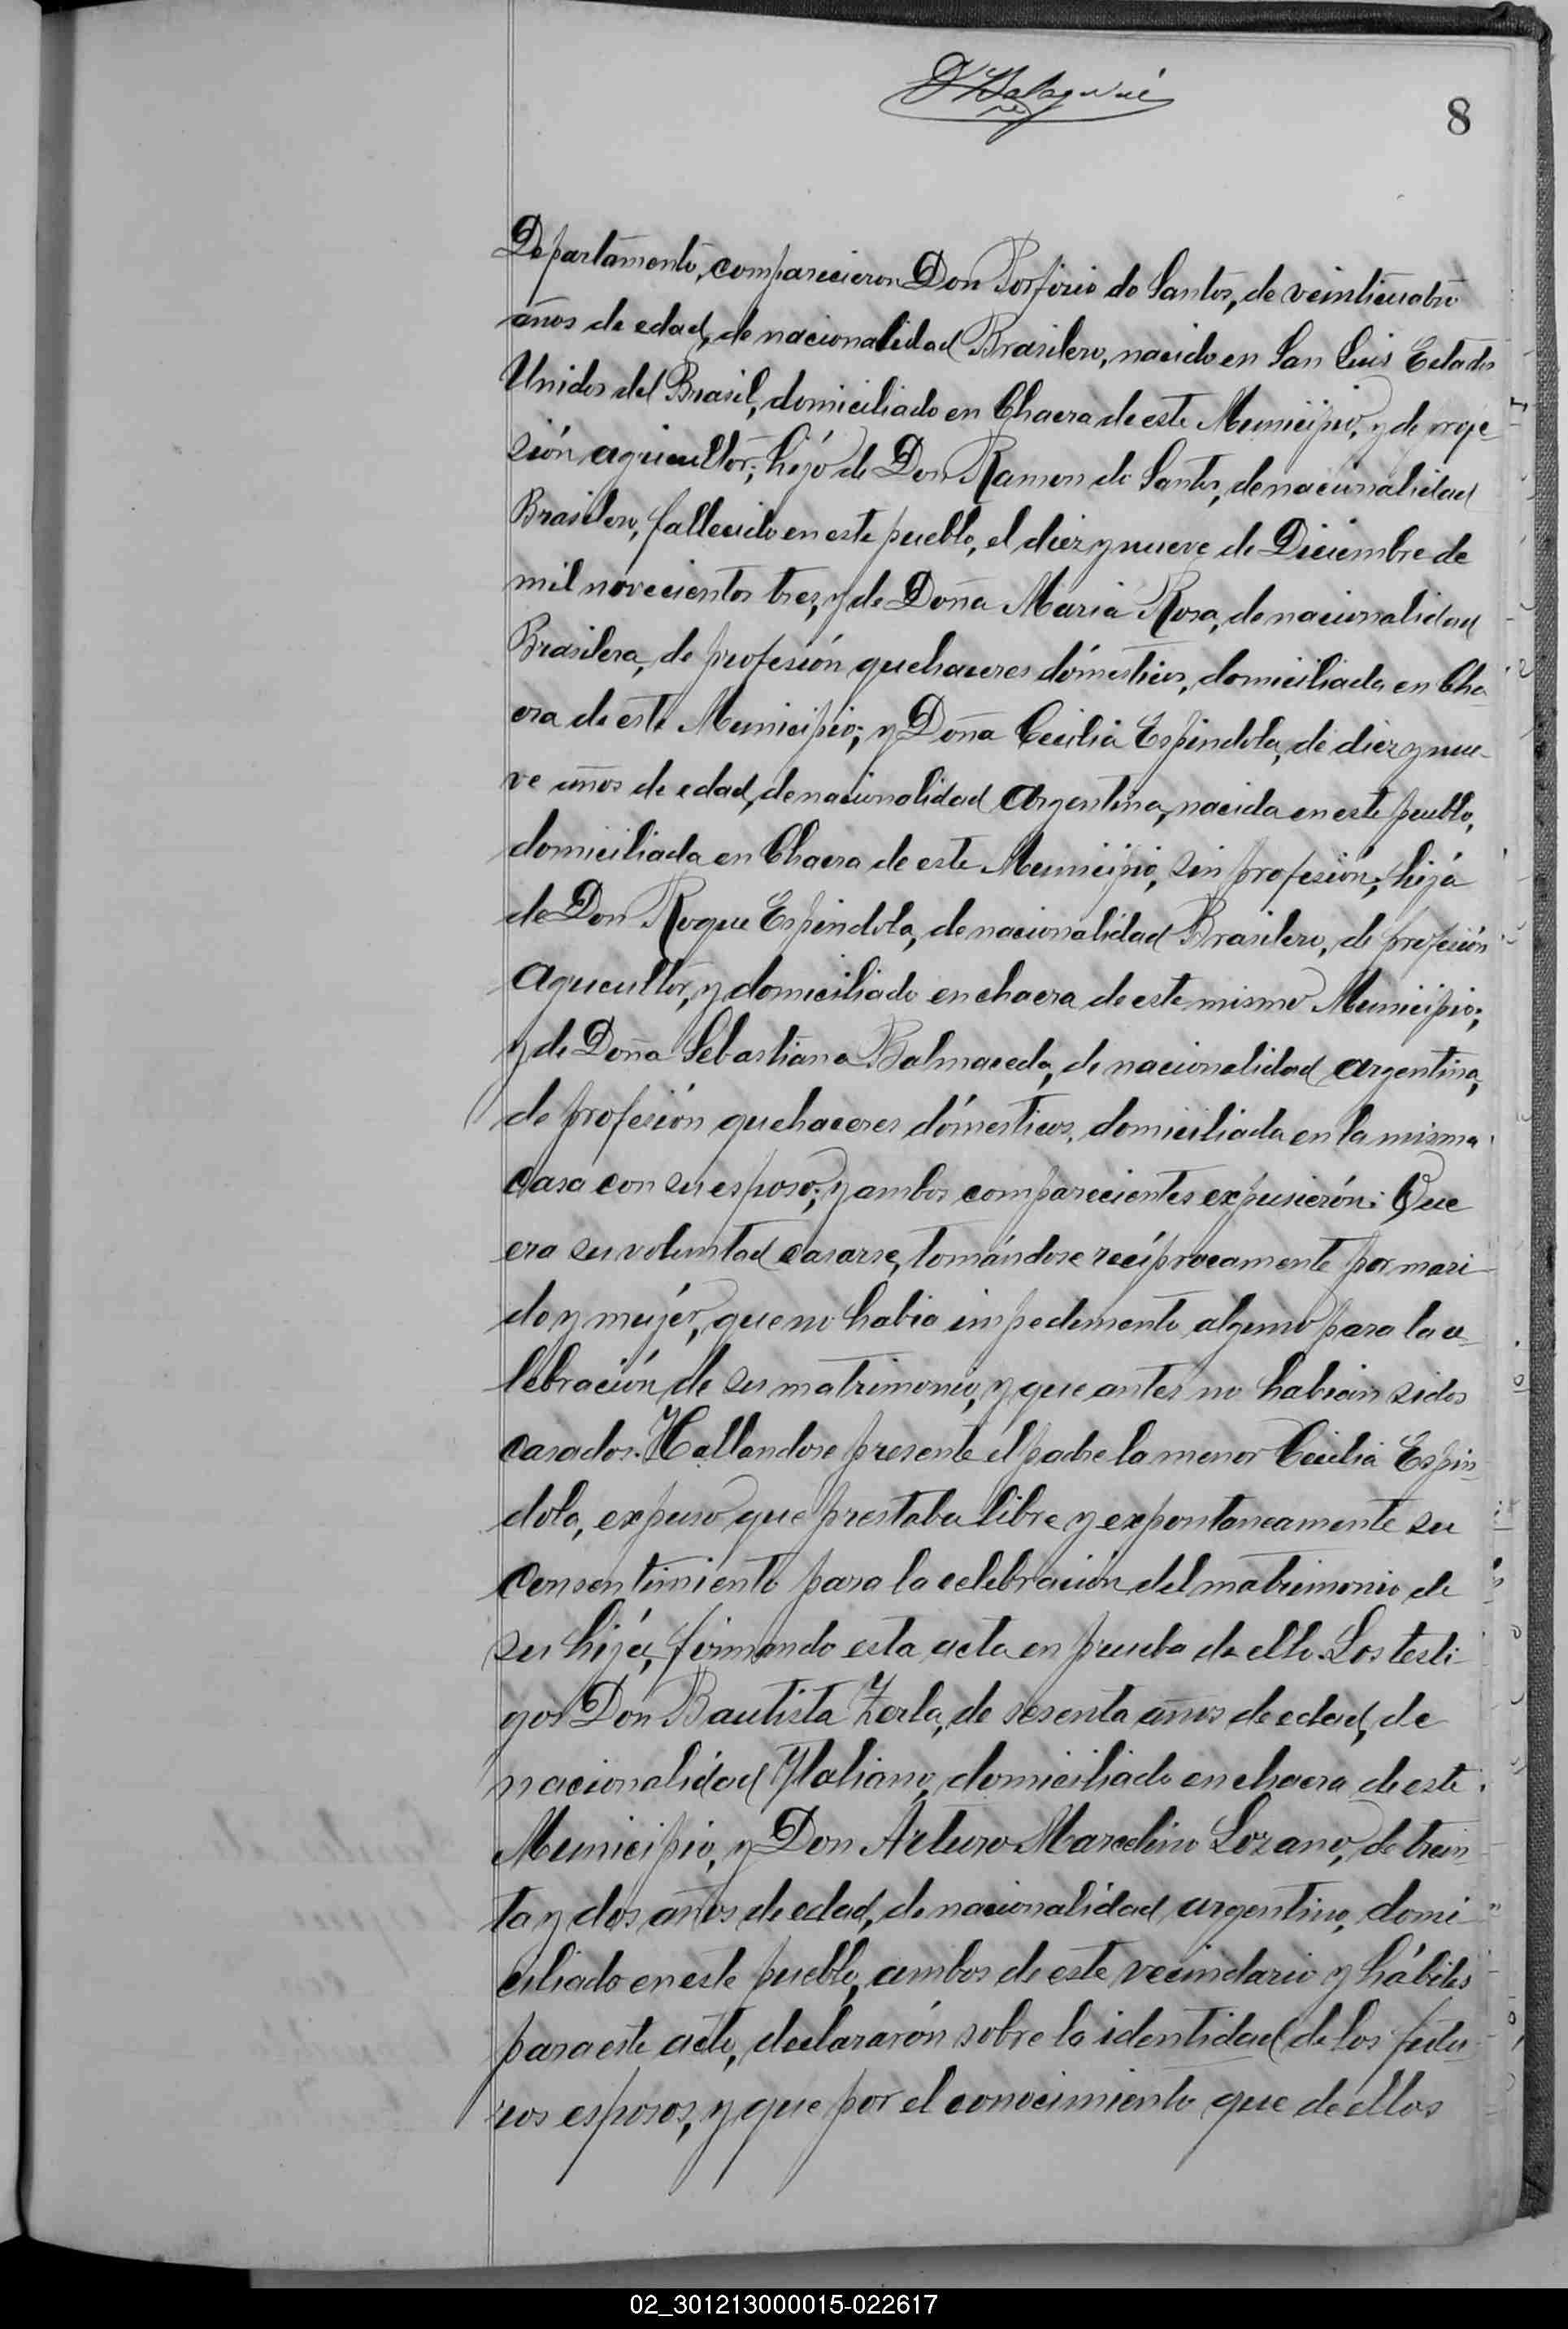 8
Departamento, comparecieron Don Porfirio do Santos, de veinticuatro
años de edad, de nacionalidad Brasilero, nacido en San Luis Estados
Unidos del Brasil, domiciliado en Chacra de este Municipio, y de profe-
sión agricultor; hijo de Don Ramon do Santos, de nacionalidad
Brasilero, fallecido en este pueblo, el diez y nueve de Diciembre de
mil novecientos tres, y de Doña Maria Rosa, de nacionalidad
Brasilera, de profesión quehaceres dómesticos, domiciliada en Cha-
cra de este Municipio; y Doña Cecilia Espindola, de diez y nue-
ve años de edad, de nacionalidad Argentina, nacida en este pueblo,
domiciliada en Chacra de este Municipio, sin profesión; hija
de Don Roque Espindola, de nacionalidad Brasilero, de profesión
Agricultor, y domiciliado en chacra de este mismo Municipio;
y de Doña Sebastiana Balmaceda, de nacionalidad argentina,
de profesión quehaceres dómesticos, domiciliada en la misma
casa con su esposo; y ambos comparecientes expusierón: Que
era su voluntad casarse, tomándose recíprocamente por mari-
do y mujér, que no habia impedimento alguno para la ce-
lebración de su matrimonio, y que antes no habian sidos
casados. Hallandose presente el padre la menor Cecilia Espin-
dola, expuso que prestaba libre y expontaneamente su
consentimiento para la celebración del matrimonio de
su hijá, firmando esta acta en prueba de ello. Los testi-
gos Don Bautista Zerla, de sesenta años de edad, de
nacionalidad Ytaliano, domiciliado en chacra de este
Municipio, y Don Arturo Marcelino Lozano, de trein-
ta y dos años de edad, de nacionalidad argentino, domi-
ciliado en este pueblo, ambos de este vecindario y hábiles
para este acto, declararón sobre la identidad de los futu-
ros esposos, y que por el conocimiento que de ellos
02_301213000015-022617